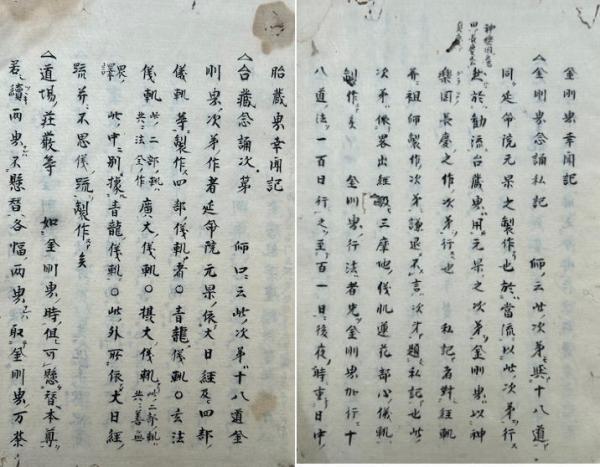 金剛界幸聞記
〽金剛界念誦私記 師云此次第與十八道
同延命院元杲之製作也於當流以此次第行
於勧流台蔵界用元杲之次第金剛界以神
樂岡長慶之作次第行也 私記者對經軌
祖師製作次第謙退不言次才題私記也
次第依畧出經三摩地儀軌蓮花部心儀軌
製作矣 金剛界行法者先金剛界加行十
八道法一百日行之至百一日後夜時重日中
胎蔵界幸聞記
〽台蔵念誦次第 師口云此次第十八道金
剛界次第作者延命院元杲依大日經及四部
儀軌等製作四部儀軌者〇青龍儀軌〇玄法
儀軌此二部軌共法全作廣大儀軌〇摂大儀軌此二部軌共善無
畏譯此中別據青龍儀軌〇此外所依大日經
疏并不思儀疏製作矣
〽道場荘嚴等 如金剛界時俱可懸替本尊
若續兩界不懸替各幅兩界取金剛界万荼